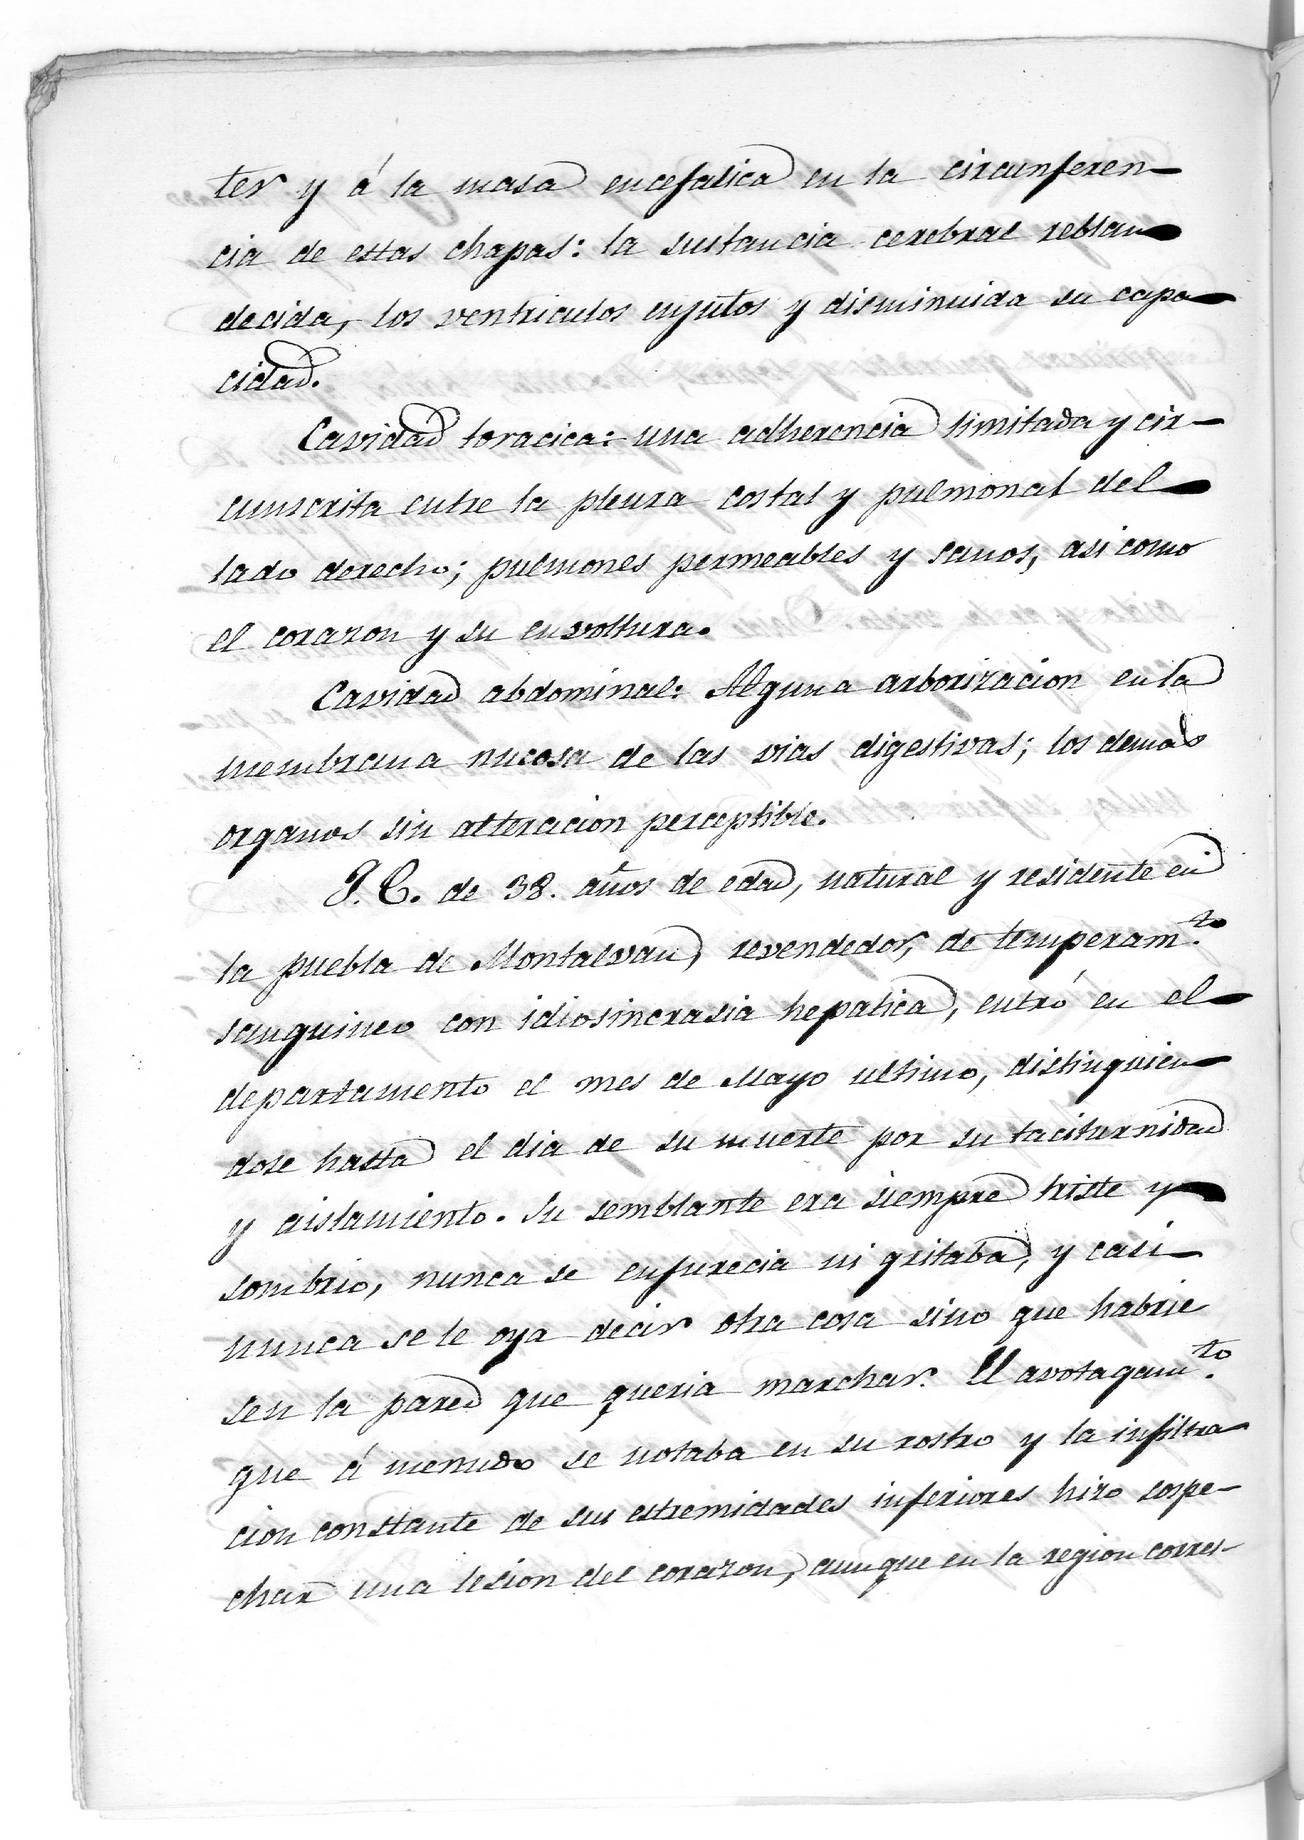 ter y á la masa encefalica en la circunferen-
cia de estas chapas: la sustancia cerebral reblan
decida, los ventriculos enjutos y disminuida su capa
cidad.
Cavidad toracica: una adherencia limitada y cir-
cunscrita entre la pleura costal y pulmonal del
lado derecho; pulmones permeables y sanos, asi como
el corazon y su envoltura.
Cavidad abdominal: Alguna arborizacion en la
membrana mucosa de las vias digestivas; los demas
organos sin alteracion perceptible.
J. C. de 38. años de edad, natural y residente en
la puebla de Montalvan, revendedor, de temperam.to
sanguineo con idiosincrasia hepatica, entró en el
departamento el mes de Mayo ultimo, distinguien
dose hasta el dia de su muerte por su taciturnidad
y aislamiento. Su semblante era siempre triste y
sombrio, nunca se enfurecia ni gritaba, y casi
nunca se le oya decir otra cosa sino que habrie
sen la pared que queria marchar. El avotagam.to
que á menudo se notaba en su rostro y la infiltra
cion constante de sus estremidades inferiores hizo sospe-
char una lesion del corazon, aunque en la region corres-